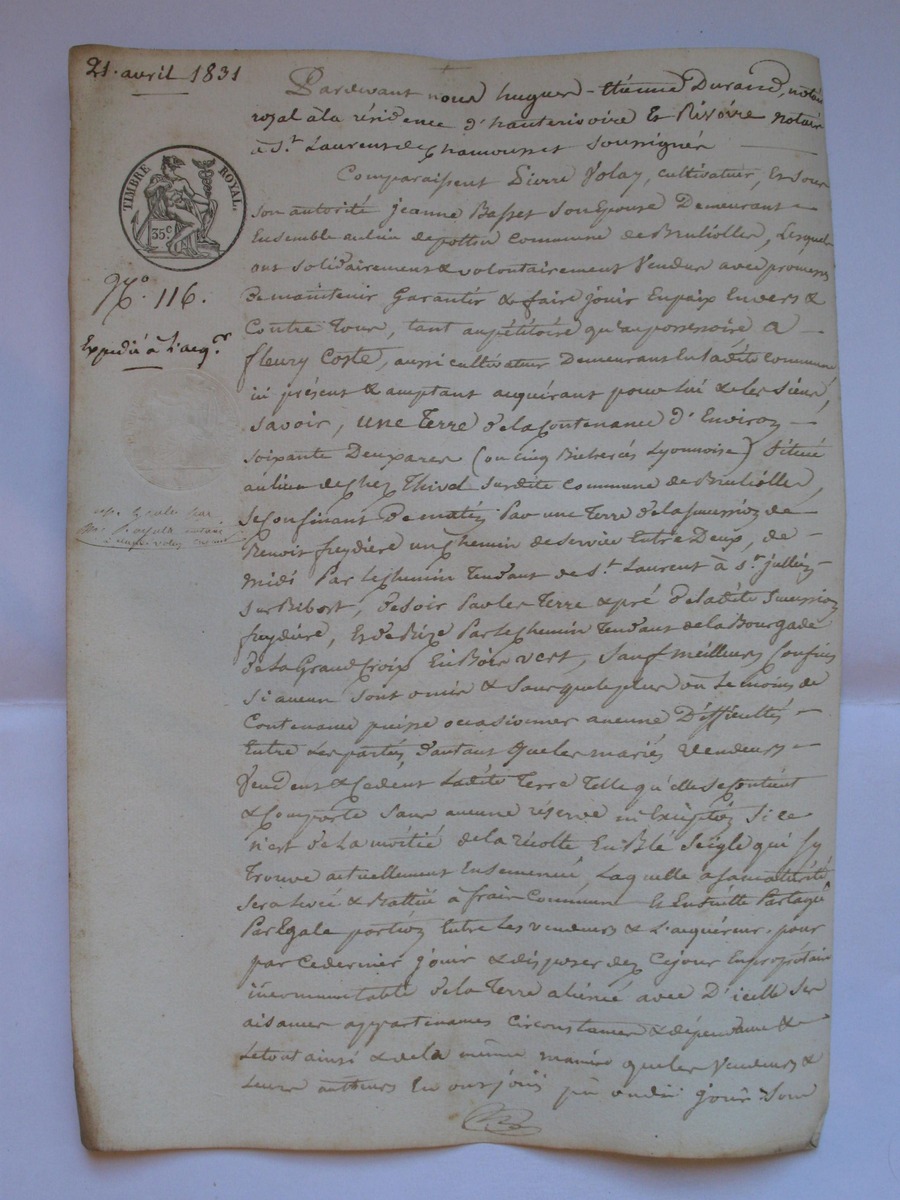 21. avril 1831
Pardevant nous hugues-étienne Durand, notaire
royal à la résidence d'hauterivoire & Rivoire notaire
à St. Laurent de Chamousset soussignés
TIMBRE ROYAL.
35c
No. 116.
Expédié à l'acqr.
Comparaissent Pierre Volay, cultivateur, & sous
son autorité jeanne Basset son Epouse Demeurant
Ensemble au lieu de pottin commune de Brulioller, Lesquels
ont solidairement & volontairement Vendus avec promesse
de maintenir Garantir & faire jouir En paix Envers &
Contre Tous, tant au pétitoire qu'au possessoire a
fleury Coste, aussi cultivateur Demeurant En ladite commune
ici présent & acceptant acquérant pour lui & les siens,
savoir, une Terre de la Contenance d'Environ
soixante Deux ares (ou cinq Bicherées Lyonnoise) Située
au lieu de chez Thivel susdite commune de Brulioller,
se Confinant De matin Par une Terre de la succession de
Benoit freydiere un chemin de service Entre Deux, de
midi Par le chemin Tendant de St. Laurent à St. jullien
sur Bibost, de soir Par les Terre & pré de ladite succession
freydiere, & de Bize Par le chemin Tendant de la Bourgade
de la Grand Croix En Bois vert, sauf meilleurs Confins
si aucun sont omis & sans que le plus ou le moins de
Contenance puisse occasionner aucune Difficultés
Entre les parties, d'autant que les mariés Vendeurs
Vendent & Cedent Ladite Terre Telle qu'elle se Contient
& Comporte sans aucune réserve ni Exception si ce
n'est de la moitié de la récolte En Blé seigle qui s'y
Trouve actuellement Ensemencé, Laquelle a sa maturité
sera & Battue à frais Commun & Ensuitte Partagé
Par Egale portion Entre les vendeurs & l'acquéreur, pour
par ce dernier jouir & disposer dez ce jour En propriétaire
incommutable de la Terre aliénée avec D'icelle ses
aisances appartenances circonstances & dépendances &
Le tout ainsi & de la même manière que les Vendeurs &
Leurs autheurs En ont joui pû ou dû jouir Sous